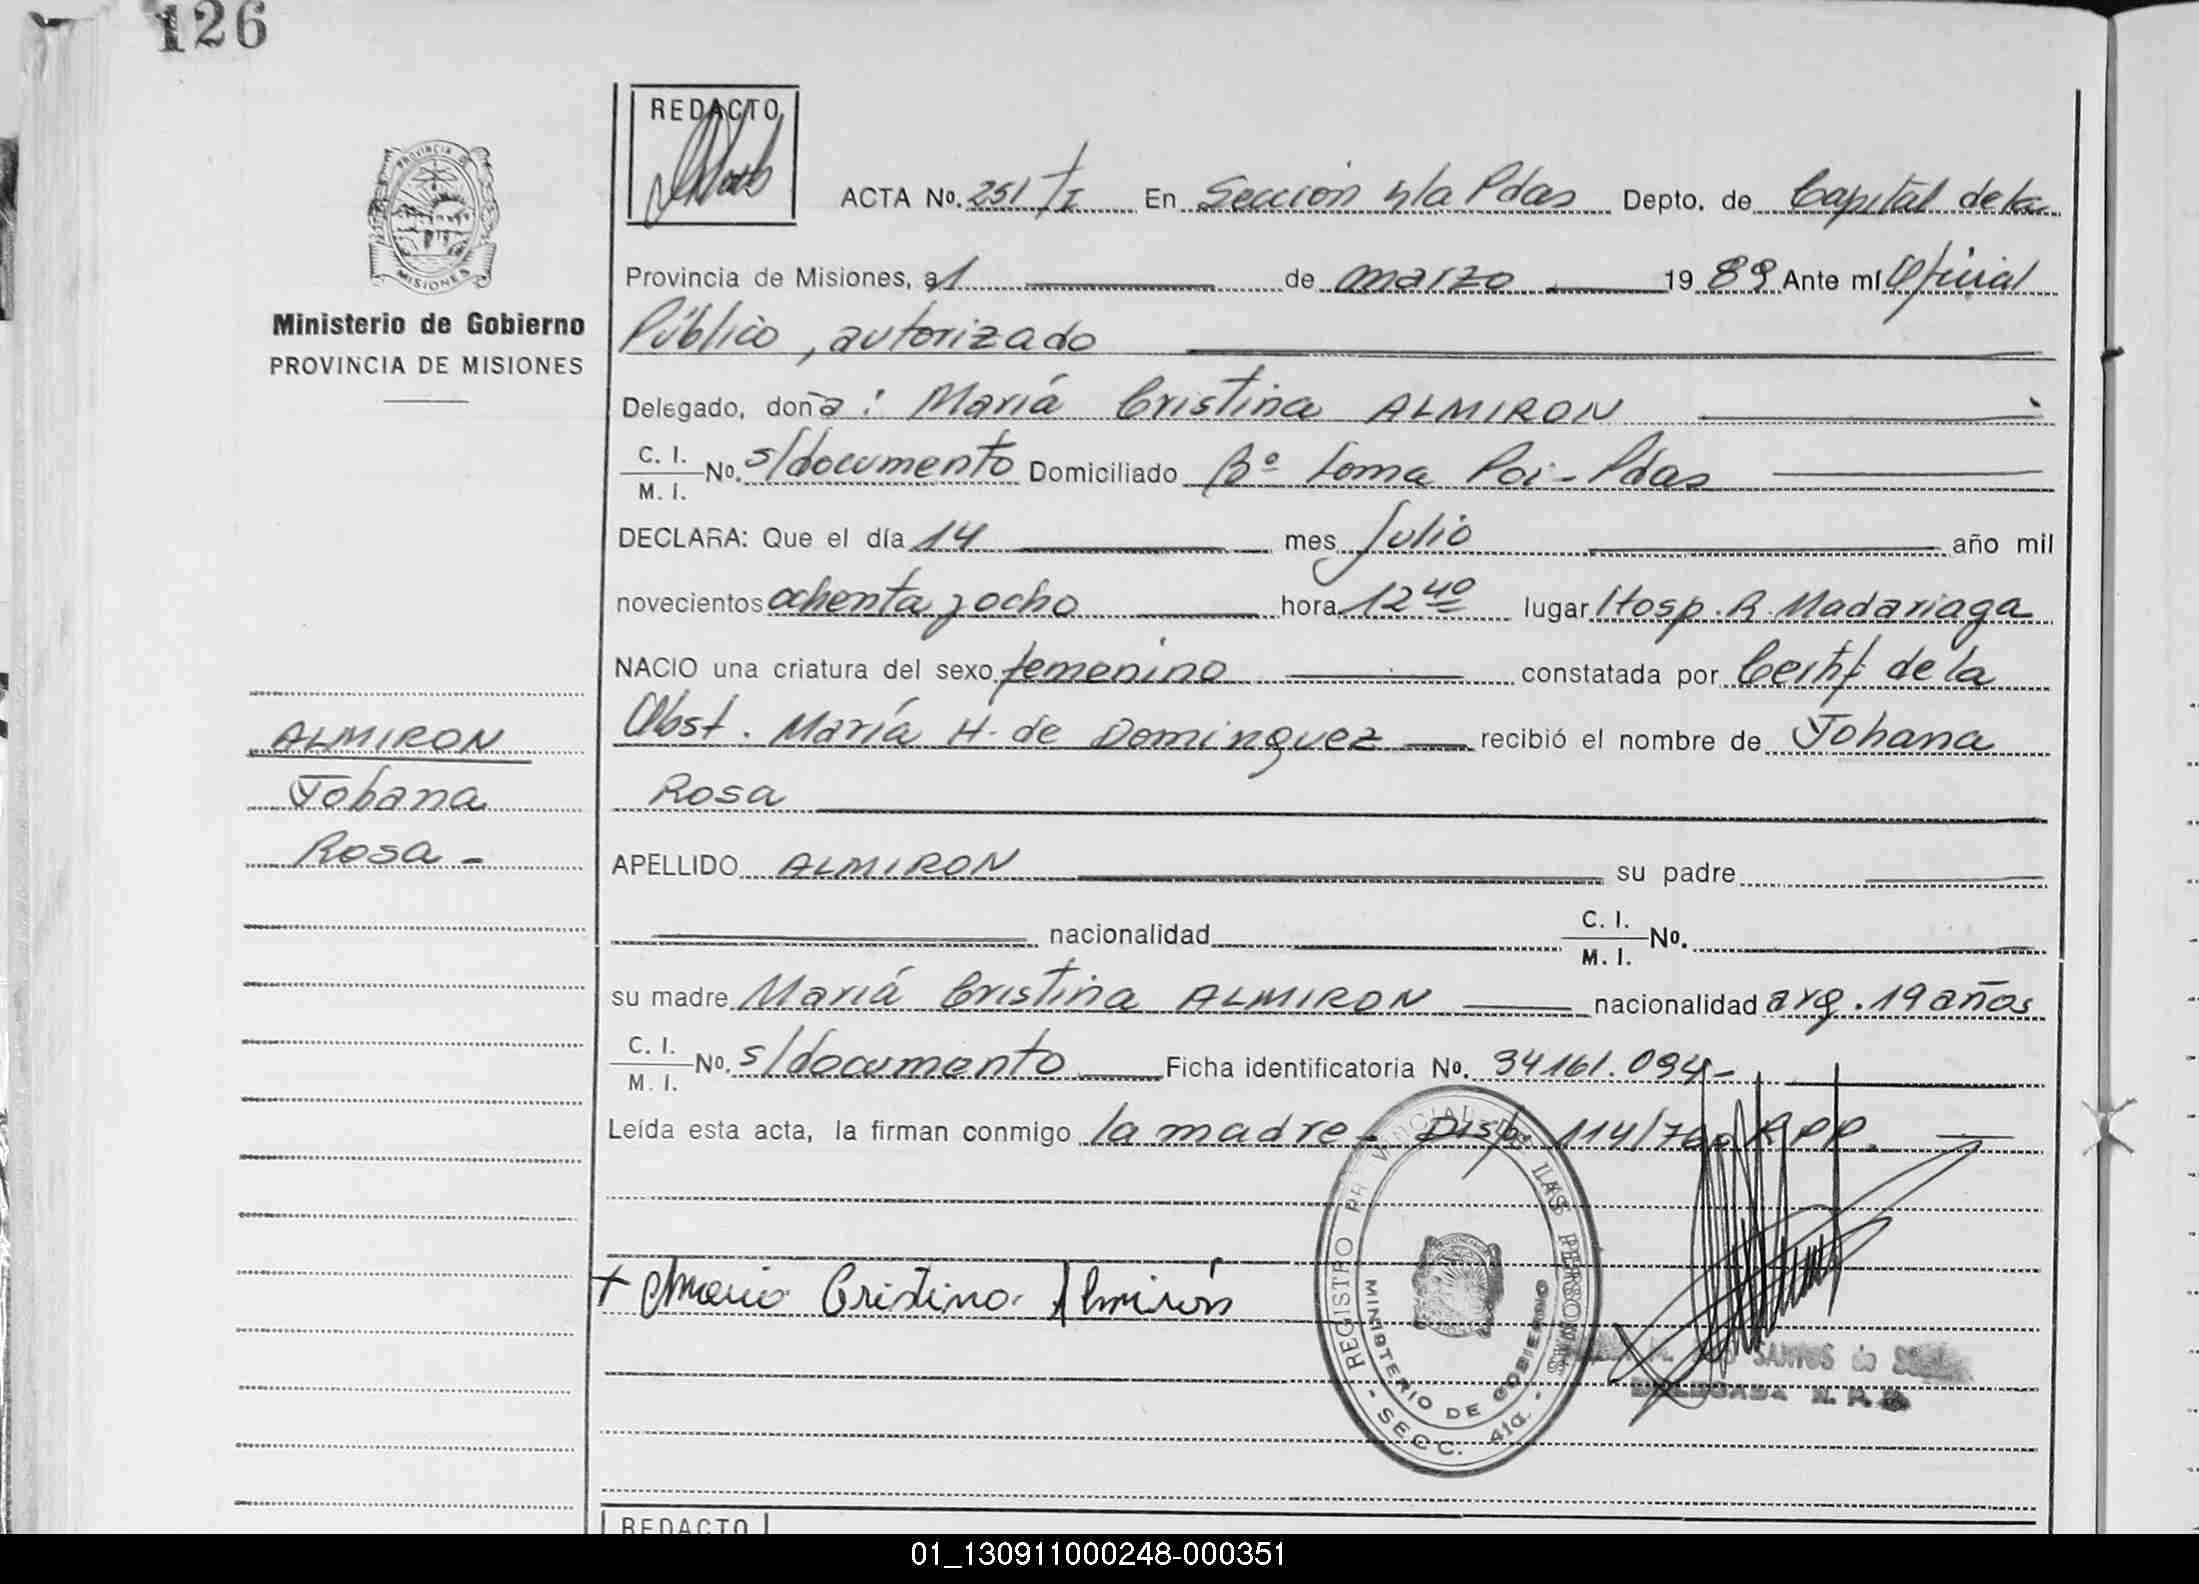 126
REDACTO
ACTA No. 251 T I En Sección 4ta Pdas Depto. de Capital de la
PROVINCIA DE
MISIONES
Provincia de Misiones, a 1 de marzo 1989 Ante mí Oficial
Ministerio de Gobierno
Público, autorizado
PROVINCIA DE MISIONES
Delegado, doña: María Cristina ALMIRON
C. I.
M. I. No. s/documento Domiciliado Bº Loma Poi - Pdas
DECLARA: Que el día 14 mes Julio año mil
novecientos ochenta y ocho hora 12 40 lugar Hosp. R. Madariaga
NACIO una criatura del sexo femenino constatada por Certif de la
ALMIRON
Obst. María H. de Dominguez recibió el nombre de Johana
Johana
Rosa
Rosa -
APELLIDO ALMIRON su padre
nacionalidad C. I.
M. I. No.
su madre María Cristina ALMIRON nacionalidad arg. 19 años
C. I.
M. I. No. s/documento Ficha identificatoria No. 34161.094-
Leída esta acta, la firman conmigo la madre - Disp. 114/76 RPP.
+ Maria Cristina Almirón
REGISTRO PROVINCIAL DE LAS PERSONAS
MINISTERIO DE GOBIERNO
- SECC. 4ta. -
SANTOS de
DELEGADA R. P.
REDACTO
01_130911000248-000351